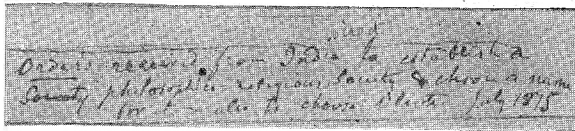 direct
Orders received from India to establish a
Society philosophico-religious Society & choose a name
for it — also to choose Olcott. July 1875